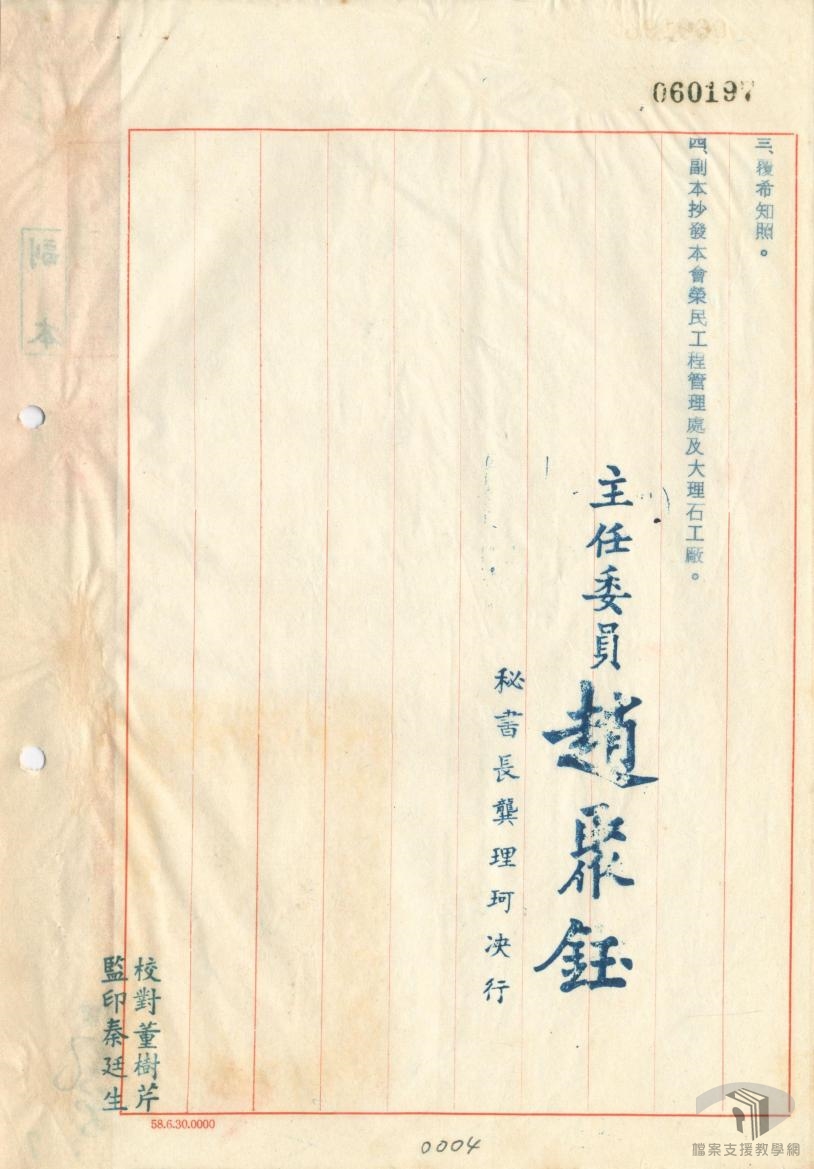 060197
三、覆希知照。
四、副本抄發本會榮民工程管理處及大理石工廠。
主任委員趙聚鈺
秘書長龔理珂决行
校對董樹芹
監印秦廷生
副本
58.6.30.0000
0004
檔案支援教學網